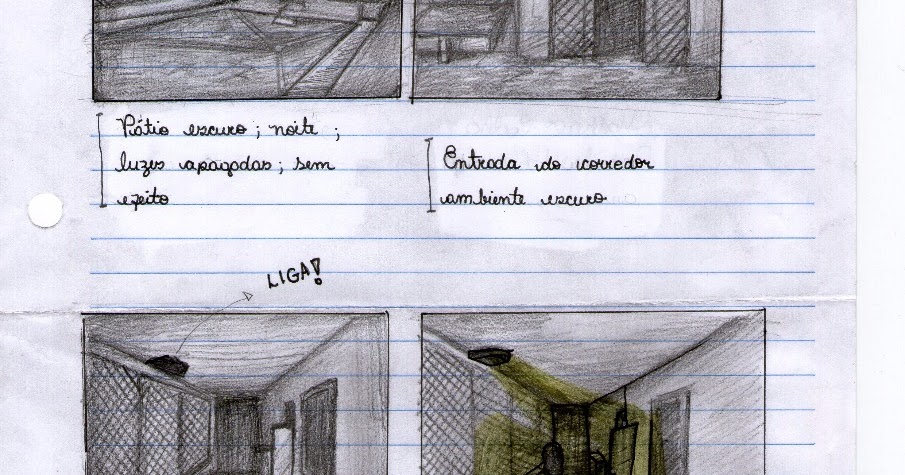 Pátio escuro ; noite ;
luzes apagadas ; sem
efeito
Entrada do corredor
ambiente escuro
LIGA!